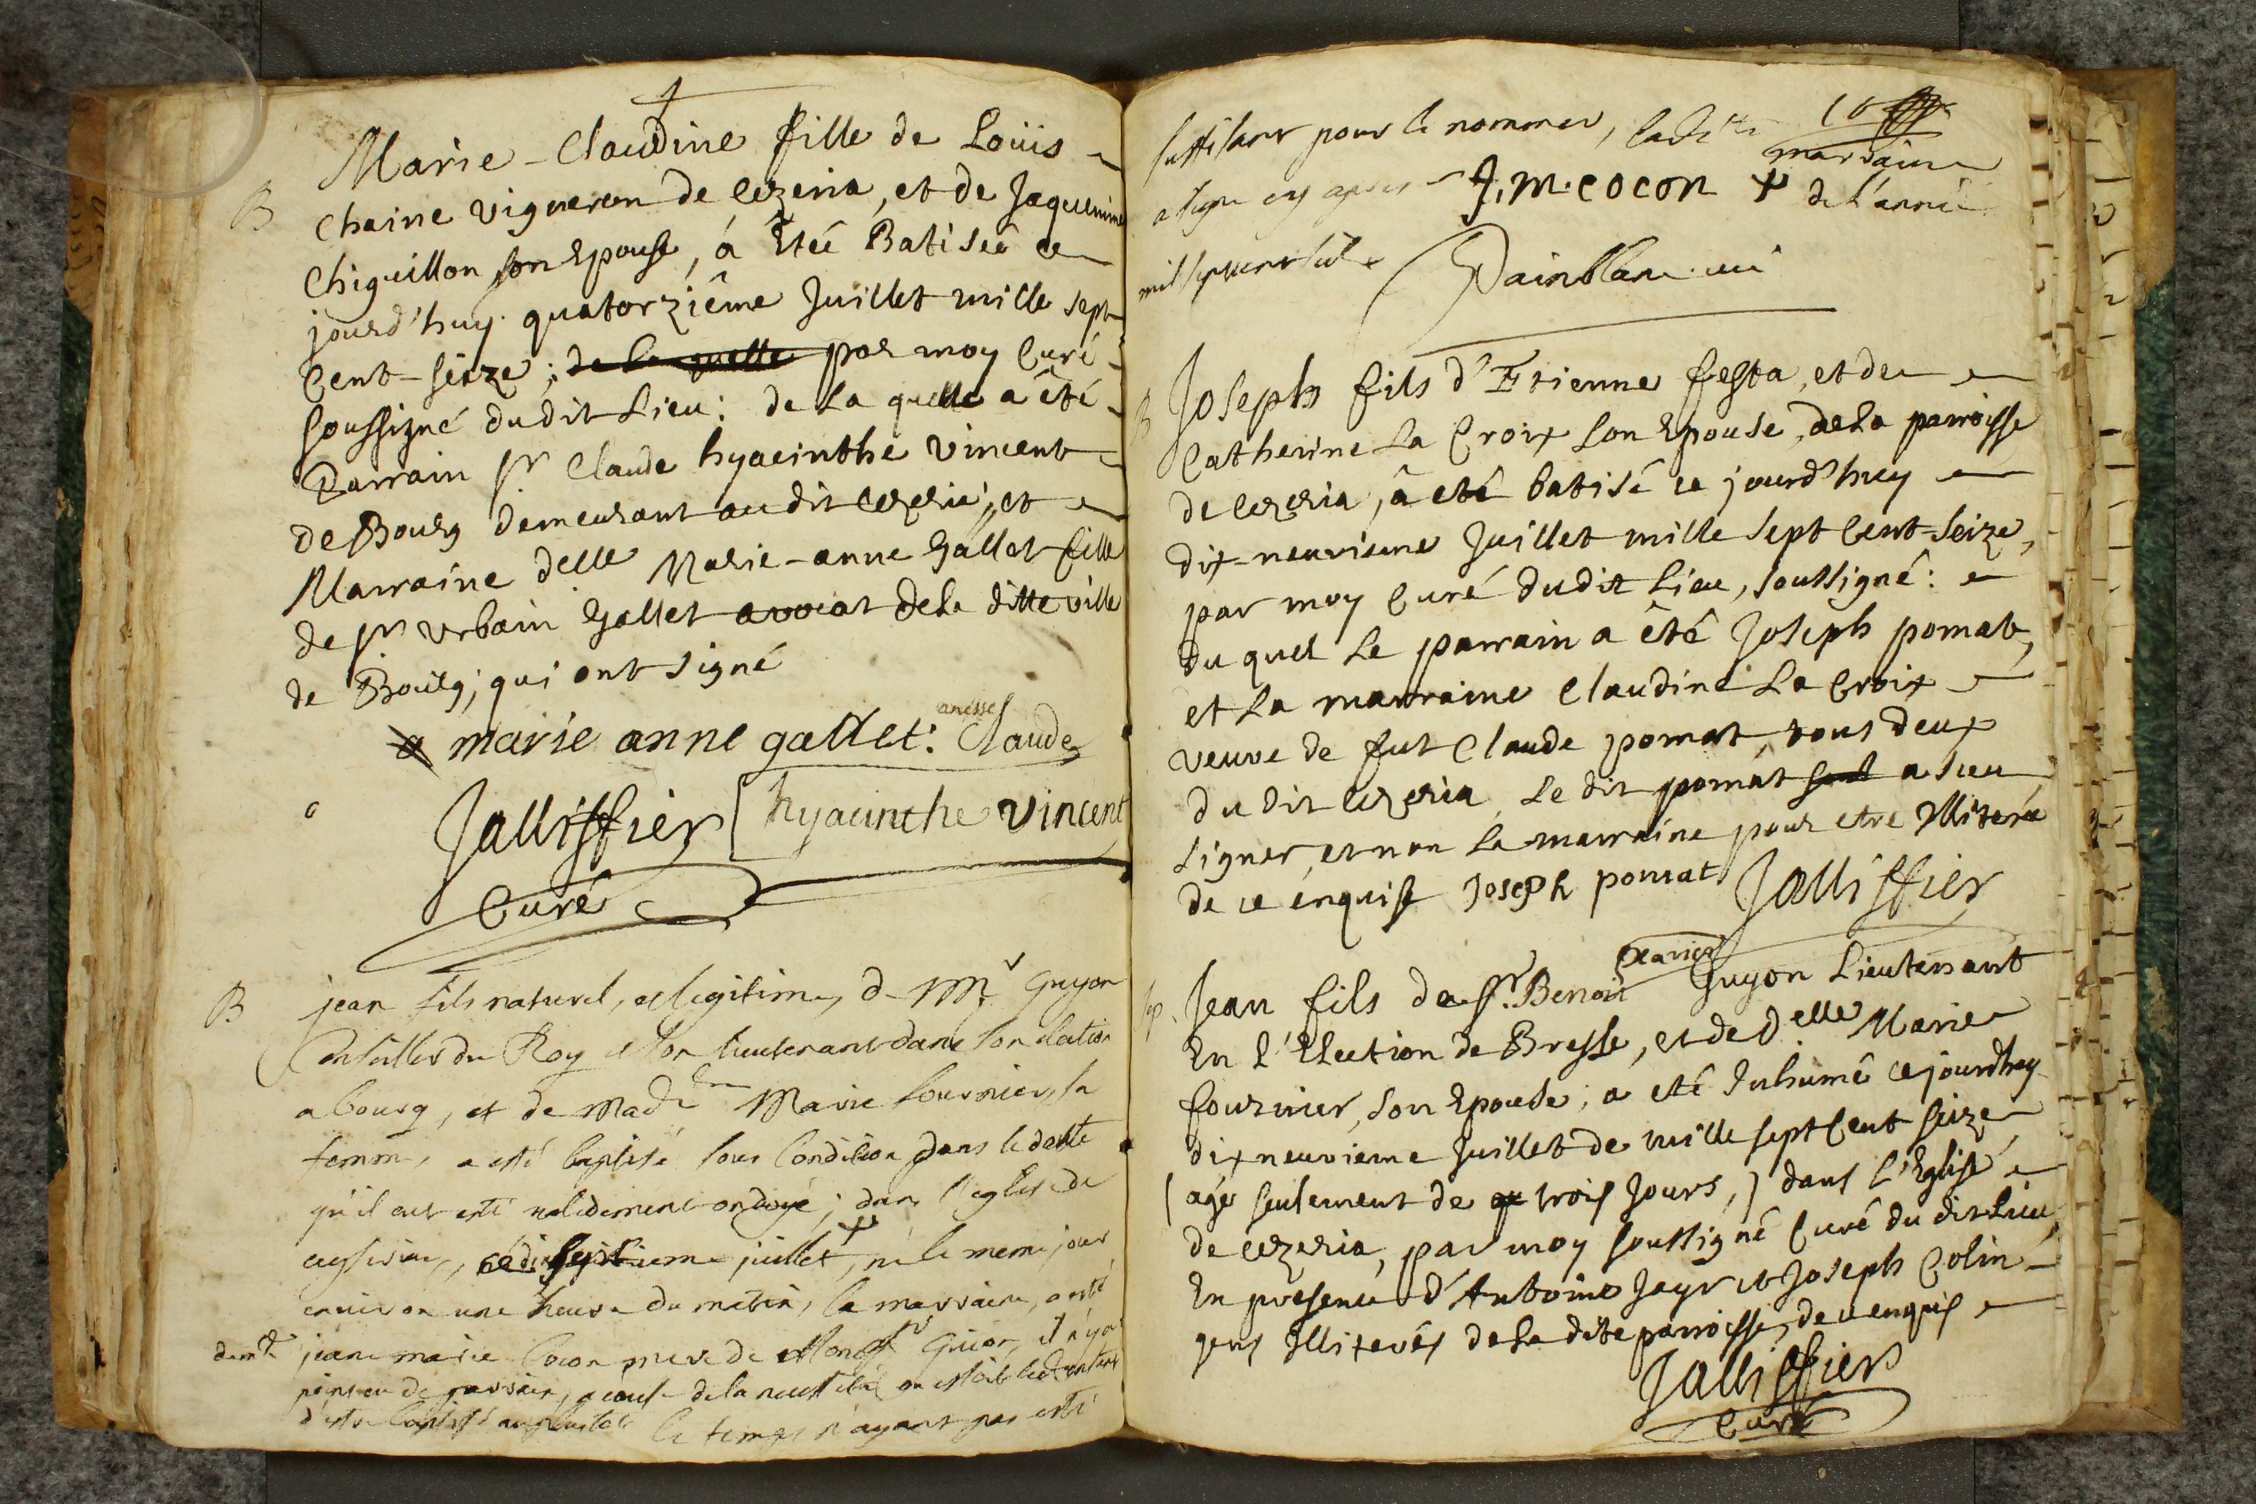 Marie-Claudine fille de Loüis
B
Chaine vigneron de Cezeria, et de Jaquemine
Chiguillon son Epouse, á Etéé Batiséé ce
jourd'huy quatorziême Juillet mille sept
Cent-seize; de la quelle par moy Curé
soussigné dudit Lieu: de la quelle a êté
Parrain Sr Claude hyacinthe Vincent
de Bourg demeurant au dit Cezeria; et
Marraine delle Marie-anne Gallet fille
de Sr Urbain Gallet avocat de la ditte ville
de Bourg; qui ont signé
a marie anne gallet: Claude
Jalliffier hyacinthe Vincent
Curé
B
jean fils naturel, et legitime, de Mr Guyon
Conseiller du Roy et son lieutenant dans son election
a bourg, et de Made Marie fournier, sa
femme, a esté baptisé sous Condition dans le doute
qu'il eut esté validement ondoyé; dans l'eglise de
juillet, né le meme jour
environ une heure du matin, la marraine, a esté
jeane marie Cocon mere de Guion, il n'y a
point eu de parrain, a cause de la necessité
d'estre baptisé le temps n'ayant pas esté
suffisant pour le nommer, marraine
a signé cy apres J. M. COCON + de l'année
mil sept cent seize
Painblanc
B
Joseph fils d'Etienne festa, et de
Catherine La Croix son Epouse, de la parroisse
de Cezeria, â eté batisé ce jourd'huy
dix-neuvieme Juillet mille sept Cent-Seize,
par moy Curé dudit Lieu, soussigné:
du quel Le parrain a êté Joseph pomat,
et La marraine Claudine La Croix
veuve de fut Claude pomat, tous deux
du dit Cezeria, Le dit pomat seul a sceu
signer, et non La marraine pour etre Illiterée
de ce enquise Joseph pomat Jalliffier
Jean fils de Sr. Benoit Guyon Lieutenant
En L'Election de Bresse, et de Delle Marie
fournier, son Epouse, a eté Inhumé ce jourdhuy
dix neuvieme Juillet de mille sept Cent seize
(agé seulement de trois Jours,) dans L'Eglise
de Cezeria, par moy soussigné Curé du dit Lieu,
En presence d'Antoine Jayr et Joseph Colin
gens Illiterés de La dite parroisse, de ce enquis
Jalliffier
Curé